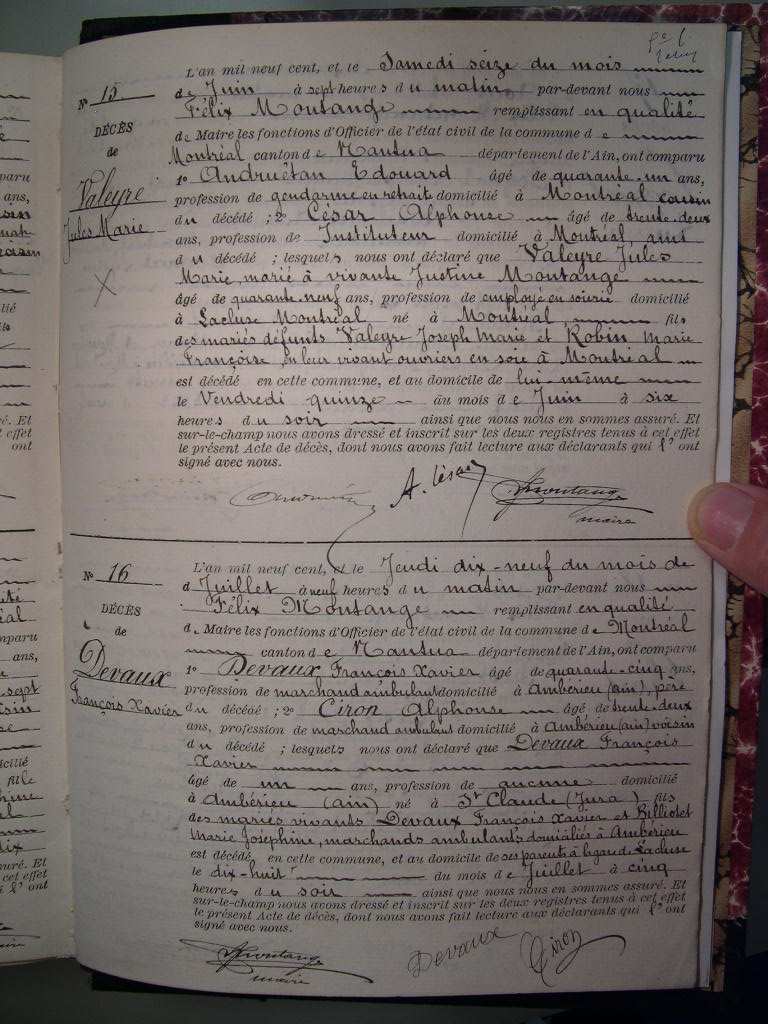 Nº 15
DÉCÈS
de
Valeyre
Jules Marie
X
L'an mil neuf cent, et le Samedi seize du mois
de Juin à sept heures du matin, par-devant nous
Félix Montange remplissant en qualité
de Maire les fonctions d'Officier de l'état civil de la commune de
Montréal canton de Nantua département de l'Ain, ont comparu
1º Andruétan Edouard âgé de quarante-un ans,
profession de gendarme en retrait domicilié à Montréal cousin
du décédé ; 2º César Alphonse âgé de trente-deux
ans, profession de Instituteur domicilié à Montréal, ami
du décédé ; lesquels nous ont déclaré que Valeyre Jules
Marie, marié à vivante Justine Montange
âgé de quarante-neuf ans, profession de employé en soierie domicilié
à Lacluse Montréal né à Montréal, fils
des mariés défunts Valeyre Joseph Marie et Robin Marie
Françoise, en leur vivant ouvriers en soie à Montréal
est décédé en cette commune, et au domicile de lui-même
le Vendredi quinze du mois de Juin à six
heures du soir ainsi que nous nous en sommes assuré. Et
sur-le-champ nous avons dressé et inscrit sur les deux registres tenus à cet effet
le présent Acte de décès, dont nous avons fait lecture aux déclarants qui l'ont
signé avec nous.
A. César
F. Montange
maire
Nº 16
DÉCÈS
de
Devaux
François Xavier
L'an mil neuf cent, et le Jeudi dix-neuf du mois de
d Juillet à neuf heures du matin par-devant nous
Félix Montange remplissant en qualité
de Maire les fonctions d'Officier de l'état civil de la commune de Montréal
canton de Nantua département de l'Ain, ont comparu
1º Devaux François Xavier âgé de quarante-cinq ans,
profession de marchand ambulant domicilié à Ambérieu (ain), père
du décédé ; 2º Ciron Alphonse âgé de trente-deux
ans, profession de marchand ambulant domicilié à Ambérieu (ain) voisin
du décédé ; lesquels nous ont déclaré que Devaux François
Xavier
âgé de un ans, profession de aucune domicilié
à Ambérieu (ain) né à St Claude (Jura) fils
des mariés vivants Devaux François Xavier et Billiotet
Marie Joséphine, marchands ambulants domiciliés à Ambérieu
est décédé en cette commune, et au domicile de ses parents à la gare de Lacluse
le dix-huit du mois de Juillet à cinq
heures du soir ainsi que nous nous en sommes assuré. Et
sur-le-champ nous avons dressé et inscrit sur les deux registres tenus à cet effet
le présent Acte de décès, dont nous avons fait lecture aux déclarants qui l'ont
signé avec nous.
F. Montange
maire
Devaux
Ciron